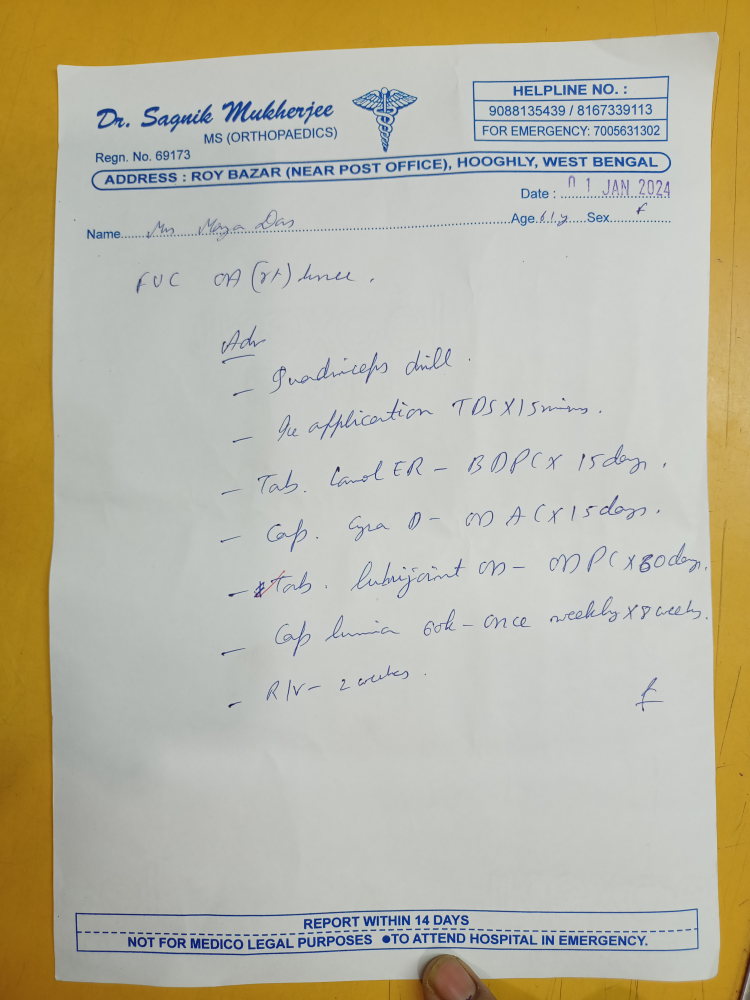 Dr. Sagnik Mukherjee
MS (ORTHOPAEDICS)
Regn. No. 69173
HELPLINE NO. :
9088135439 / 8167339113
FOR EMERGENCY: 7005631302
ADDRESS : ROY BAZAR (NEAR POST OFFICE), HOOGHLY, WEST BENGAL
Date : 01 JAN 2024
Name Mrs Maya Das Age 61y Sex F
FUC OA (rt) knee.
Adv
- Quadriceps drill.
- Ice application TDS X 15 mins.
- Tab. ER - BDPC X 15 days.
- Cap. Cyra D - OD AC X 15 days.
- Tab. Lubrijoint - OD PC X 30 days.
- Cap Lumia 60k - once weekly X 8 weeks.
- R/V - 2 weeks.
REPORT WITHIN 14 DAYS
NOT FOR MEDICO LEGAL PURPOSES ●TO ATTEND HOSPITAL IN EMERGENCY.